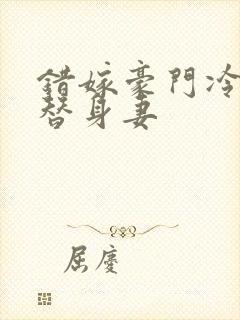 錯嫁豪門冷
替身妻
屈慶